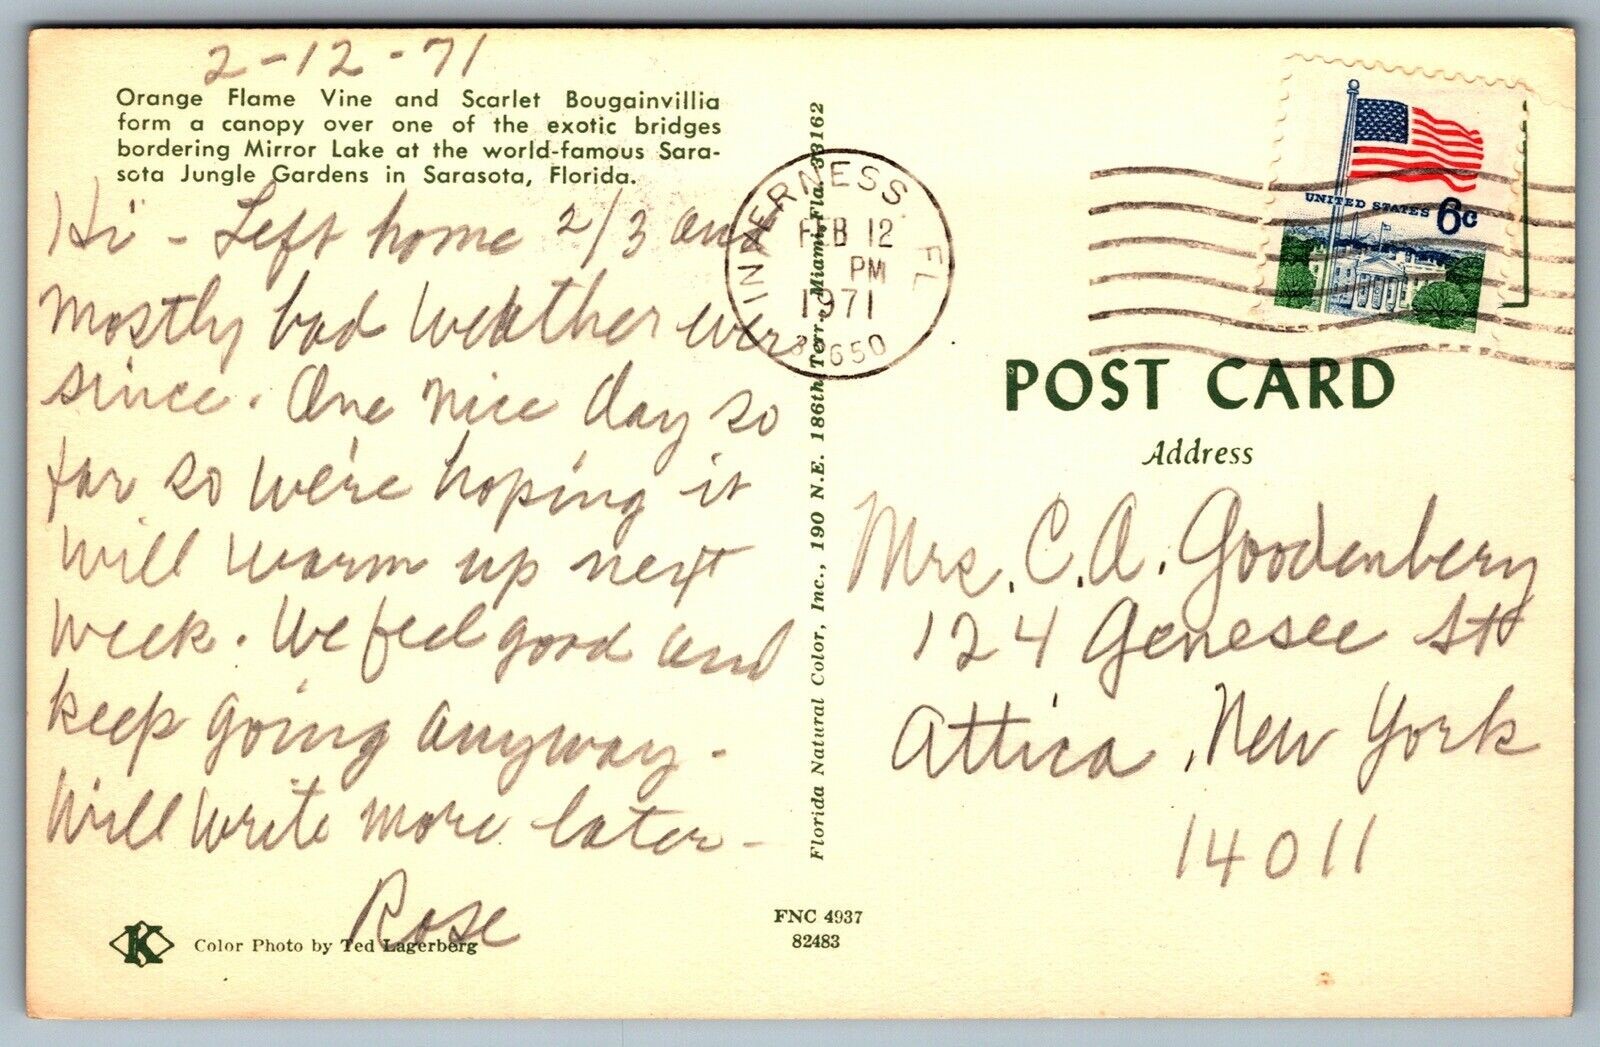 2-12-71
Orange Flame Vine and Scarlet Bougainvillia
form a canopy over one of the exotic bridges
bordering Mirror Lake at the world-famous Sara-
sota Jungle Gardens in Sarasota, Florida.
Hi - Left home 2/3 and
mostly bad weather ever
since. One nice day so
far so we're hoping it
will warm up next
week. We feel good and
keep going anyway -
Will write more later -
Rose
K
Color Photo by Ted Lagerberg
Florida Natural Color, Inc., 190 N.E. 186th Terr., Miami, Fla. 33162
FNC 4937
82483
INVERNESS FL
FEB 12
PM
1971
32650
UNITED STATES 6c
POST CARD
Address
Mrs. C. A. Goodenbery
124 Genesee St
Attica, New York
14011